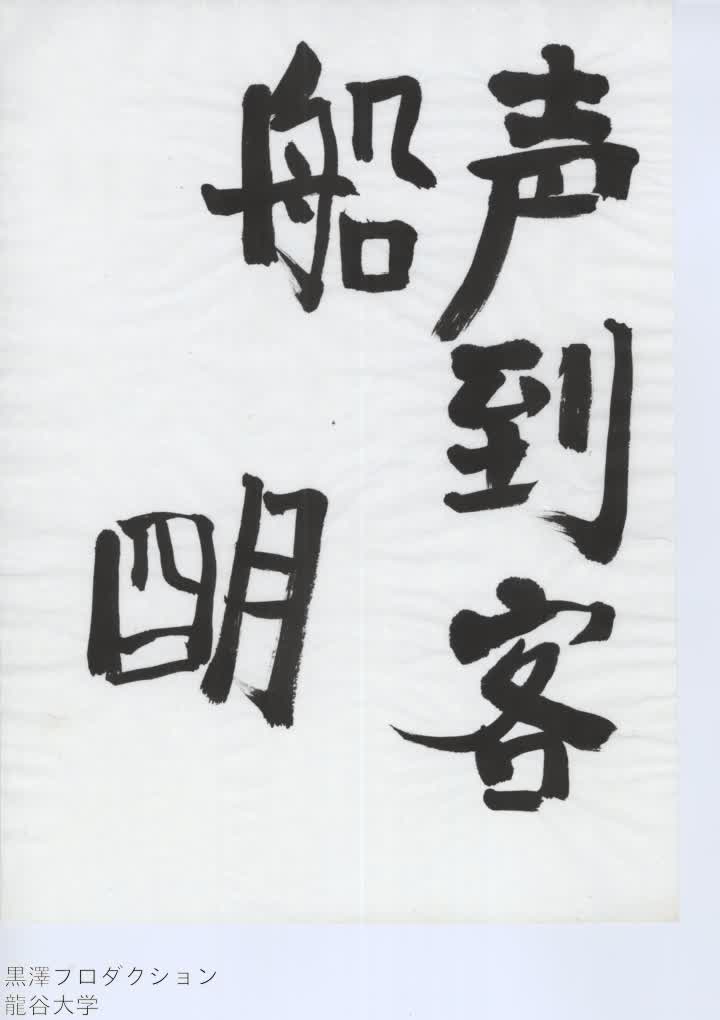 声到客
船
明
黒澤プロダクション
龍谷大学